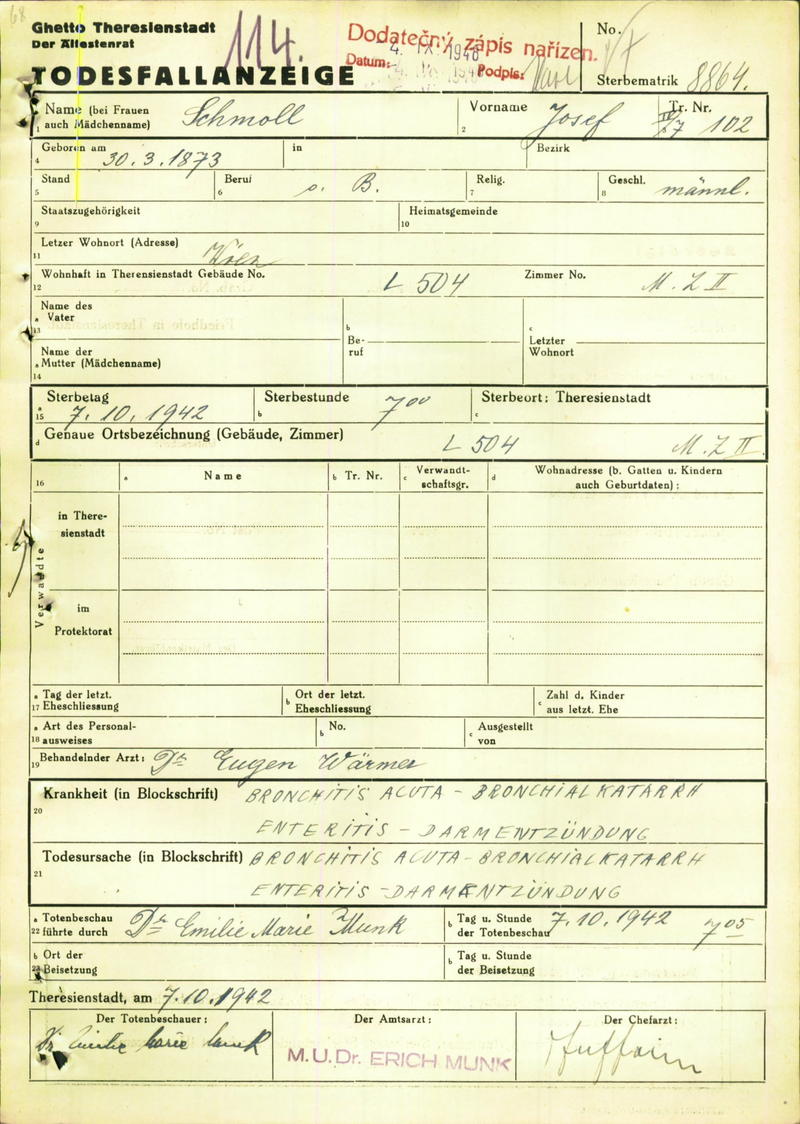 Ghetto Theresienstadt
Der Ältestenrat
114.
Dodatečný zápis nařízen.
Datum: Podpis:
No.
TODESFALLANZEIGE
Sterbematrik 8864.
1 Name (bei Frauen auch Mädchenname) Schmoll
2 Vorname Josef
Tr. Nr. IV/7 102
4 Geboren am 30.3.1873
in
Bezirk
5 Stand
6 Beruf o. B.
7 Relig.
8 Geschl. männl.
9 Staatszugehörigkeit
10 Heimatsgemeinde
11 Letzer Wohnort (Adresse) Wien
12 Wohnhaft in Theresienstadt Gebäude No. L 504
Zimmer No. M. Z II
a 13 Name des Vater
a 14 Name der Mutter (Mädchenname)
b Beruf
c Letzter Wohnort
a 15 Sterbetag 7.10.1942
b Sterbestunde 7 00
c Sterbeort: Theresienstadt
d Genaue Ortsbezeichnung (Gebäude, Zimmer) L 504 M. Z II
16
a Name
b Tr. Nr.
c Verwandtschaftsgr.
d Wohnadresse (b. Gatten u. Kindern auch Geburtdaten):
Verwandte
in Theresienstadt
im Protektorat
a 17 Tag der letzt. Eheschliessung
b Ort der letzt. Eheschliessung
c Zahl d. Kinder aus letzt. Ehe
a 18 Art des Personalausweises
b No.
c Ausgestellt von
19 Behandelnder Arzt: Dr Eugen Wärmer
20 Krankheit (in Blockschrift) BRONCHITIS ACUTA - BRONCHIALKATARRH
ENTERITIS - DARMENTZÜNDUNG
21 Todesursache (in Blockschrift) BRONCHITIS ACUTA - BRONCHIALKATARRH
ENTERITIS - DARMENTZÜNDUNG
a 22 Totenbeschau führte durch Dr Emilie Marie Munk
b Tag u. Stunde der Totenbeschau 7.10.1942 7 05
b 23 Ort der Beisetzung
b Tag u. Stunde der Beisetzung
Theresienstadt, am 7.10.1942
Der Totenbeschauer:
Dr Emilie Marie Munk
Der Amtsarzt:
M.U.Dr. ERICH MUNK
Der Chefarzt: